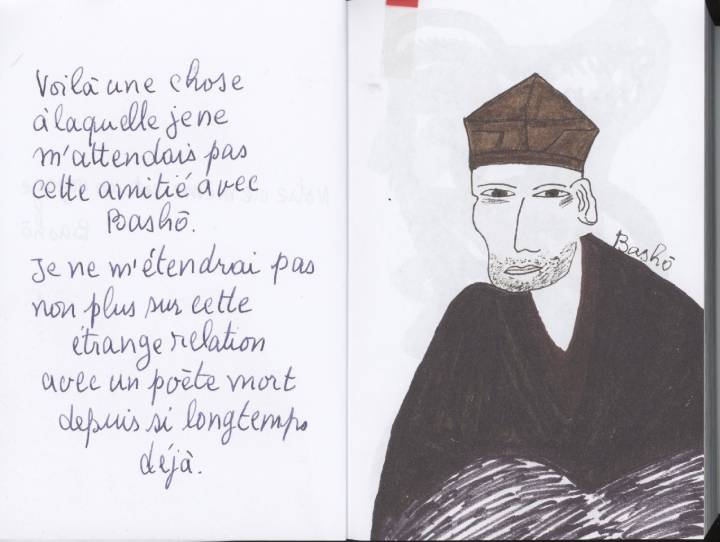 Voilà une chose
à laquelle je ne
m'attendais pas
cette amitié avec
Bashō.
Je ne m'étendrai pas
non plus sur cette
étrange relation
avec un poète mort
depuis si longtemps
déjà.
Bashō